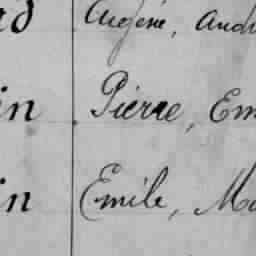 Eugène,
in Pierre, Em
in Emile, Ma